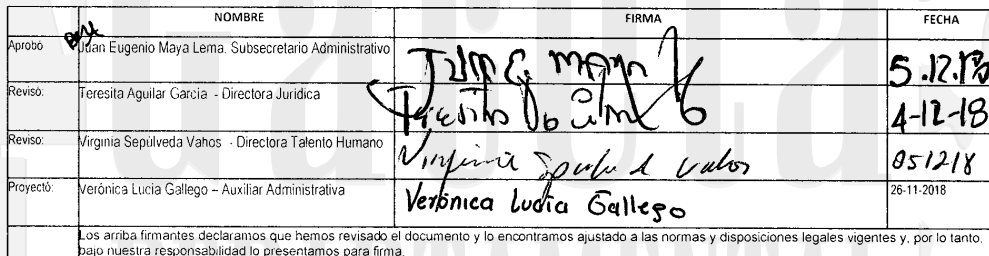 NOMBRE FIRMA FECHA
Aprobó Juan Eugenio Maya Lema. Subsecretario Administrativo Juan E. Maya 5.12.18
Revisó: Teresita Aguilar Garcia - Directora Jurídica Teresita 4-12-18
Reviso: Virginia Sepúlveda Vahos - Directora Talento Humano Virginia Sepulveda Vahos 051218
Proyectó: Verónica Lucia Gallego – Auxiliar Administrativa Verónica Lucía Gallego 26-11-2018
Los arriba firmantes declaramos que hemos revisado el documento y lo encontramos ajustado a las normas y disposiciones legales vigentes y, por lo tanto,
bajo nuestra responsabilidad lo presentamos para firma.